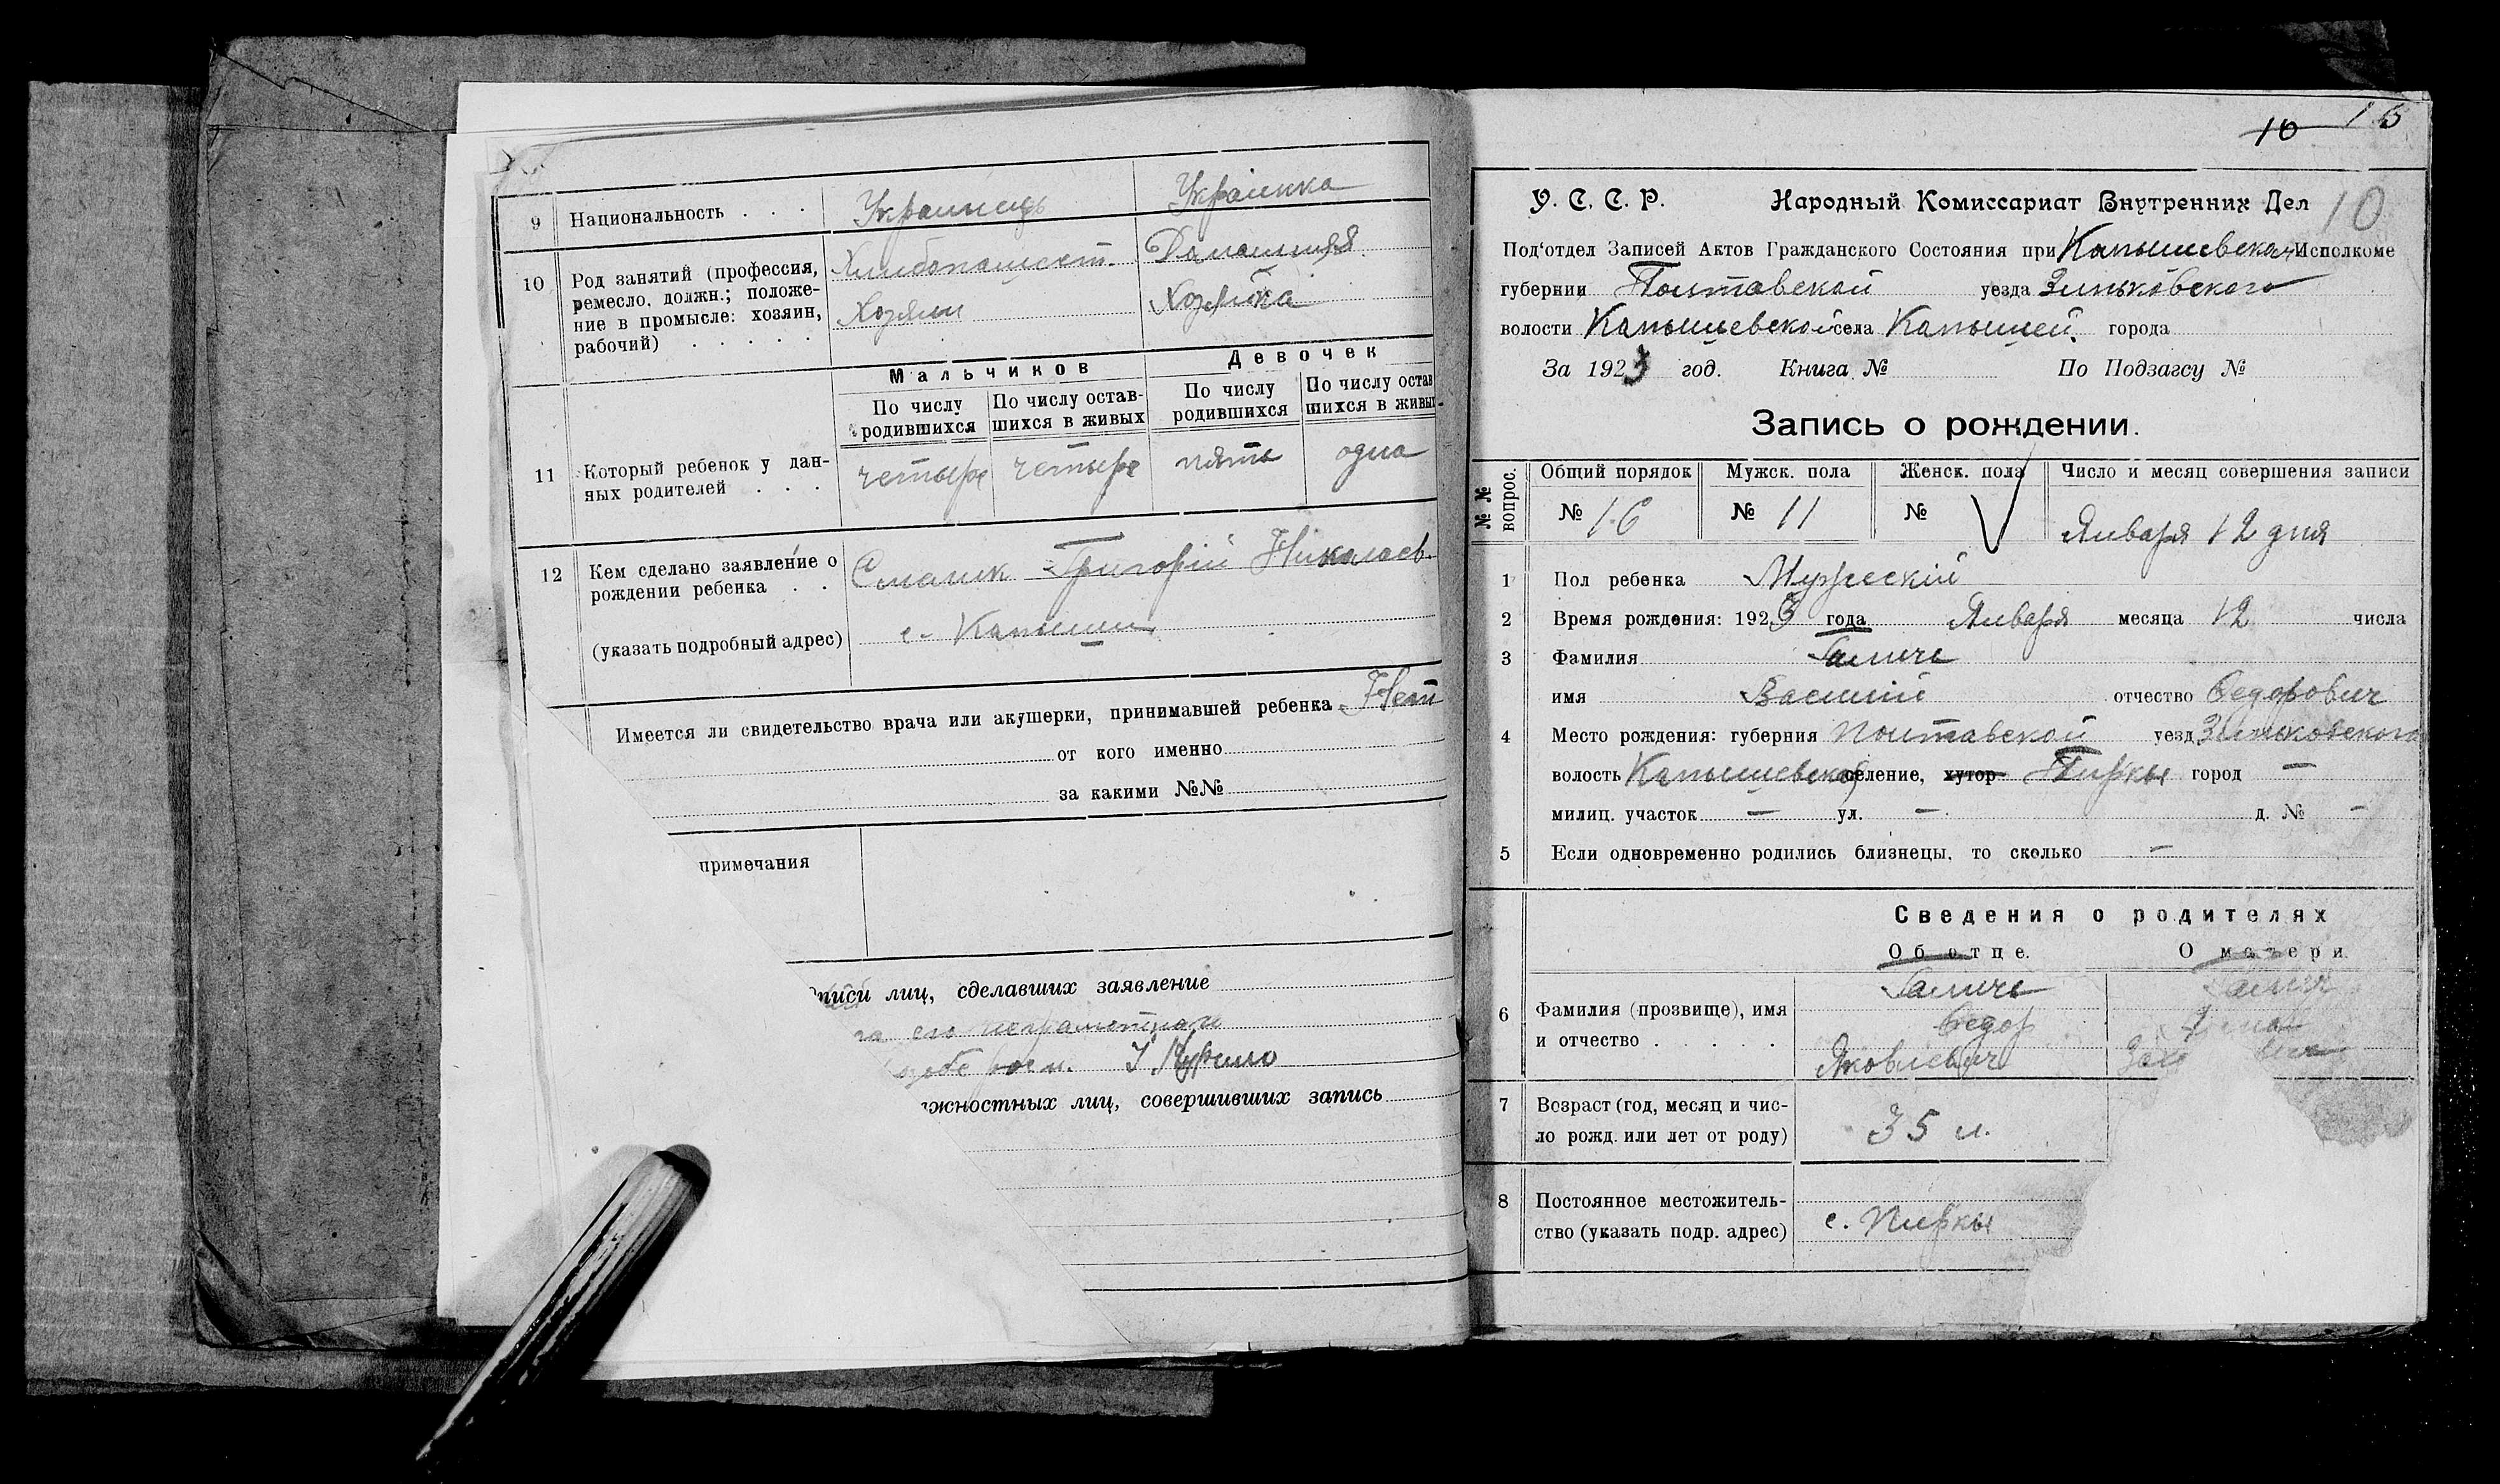 9 Национальность . . . Украинець Украинка
10 Род занятий (профессия, ремесло, должн.; положение в промысле: хозяин, рабочий) . . . . .
Домашняя
Хозяин Хозяйка
Мальчиков Девочек
По числу родившихся По числу оставшихся в живых По числу родившихся По числу остав шихся в живы
11 Который ребенок у данных родителей . . . четыре четыре пять одна
12 Кем сделано заявление о рождении ребенка . . Григорій Николаев.
(указать подробный адрес) с.
Имеется ли свидетельство врача или акушерки, принимавшей ребенка Нет
от кого именно
за какими №№
примечания
писи лиц, сделавших заявление
его неграмотнаго
жностных лиц, совершивших запись
10 15
10
У. С. С. Р. Народный Комиссариат Внутренних Дел
Под'отдел Записей Актов Гражданского Состояния при Исполкоме
губернии Полтавской уезда Зиньковского
волости села города
За 1923 год. Книга № По Подзагсу №
Запись о рождении.
№№ вопрос. Общий порядок Мужск. пола Женск. пола Число и месяц совершения записи
№ 16 № 11 № Января 12 дня
1 Пол ребенка Мужескій
2 Время рождения: 1923 года Января месяца 12 числа
3 Фамилия
имя Василий отчество Федорович
4 Место рождения: губерния Полтавской уезд Зиньковского
волость селение, хутор Пирки город —
милиц. участок — ул. — д. № —
5 Если одновременно родились близнецы, то сколько —
Сведения о родителях
Об отце. О матери
6 Фамилия (прозвище), имя и отчество . . . . .
Федор
Яковлевич
7 Возраст (год, месяц и число рожд. или лет от роду) 35 л.
8 Постоянное местожительство (указать подр. адрес) с. Пирки